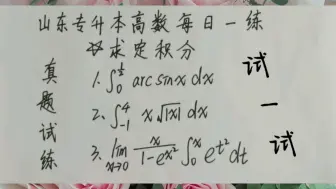 山东专升本高数每日一练
求定积分
真题试练
1. ∫₀^½ arc sinx dx
2. ∫₋₁⁴ x√|x| dx
3. lim x→0 x/(1-e^x²) ∫₀^x e^t² dt
试一试